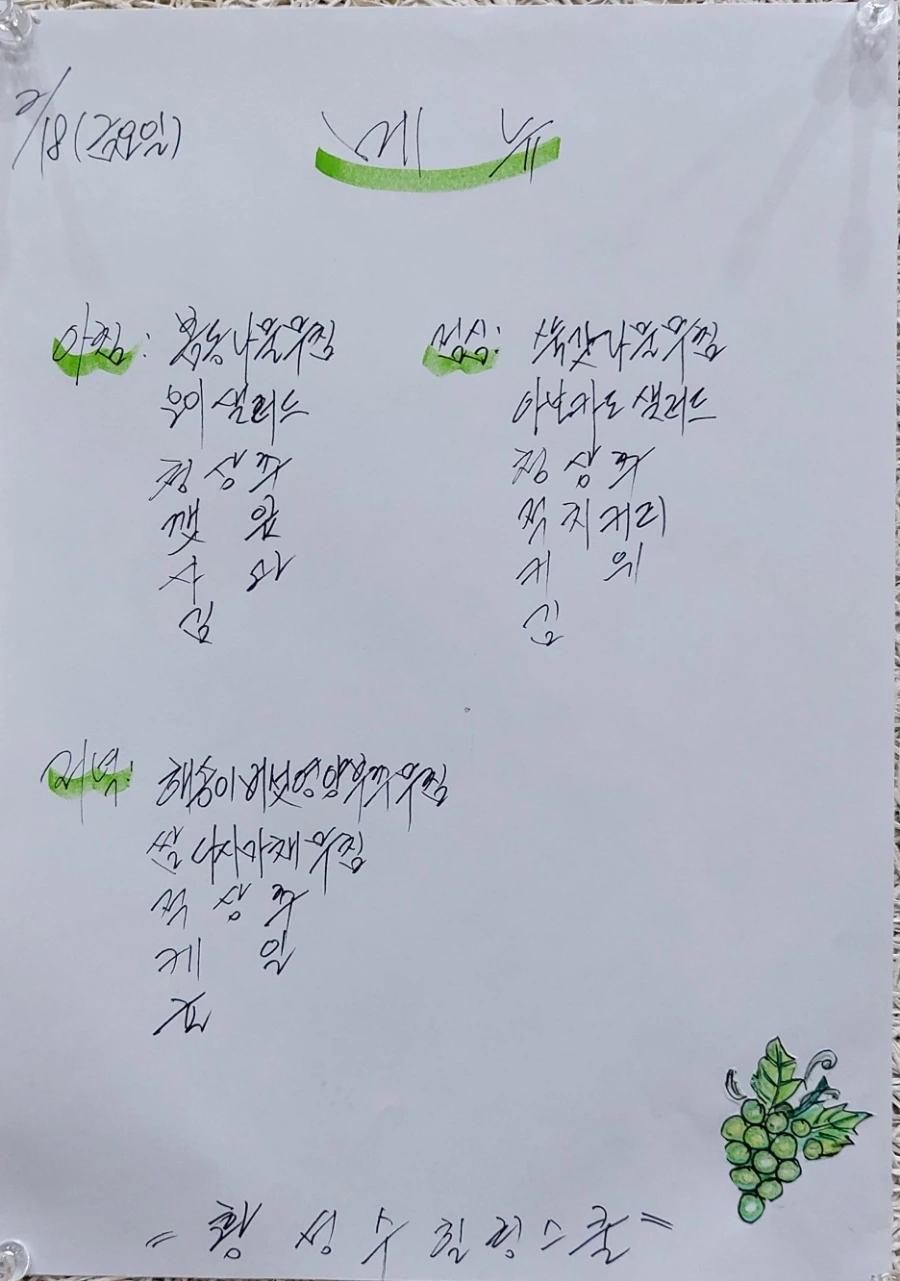 2/18 (금요일)
메뉴
아침: 봄동나물무침
오이샐러드
청상추
깻잎
사과
김
점심: 쑥갓나물무침
아보카도샐러드
청상추
적치커리
키위
김
저녁: 해송이버섯영양부추무침
쌈다시마채무침
적상추
케일
굴
"황성수힐링스쿨"